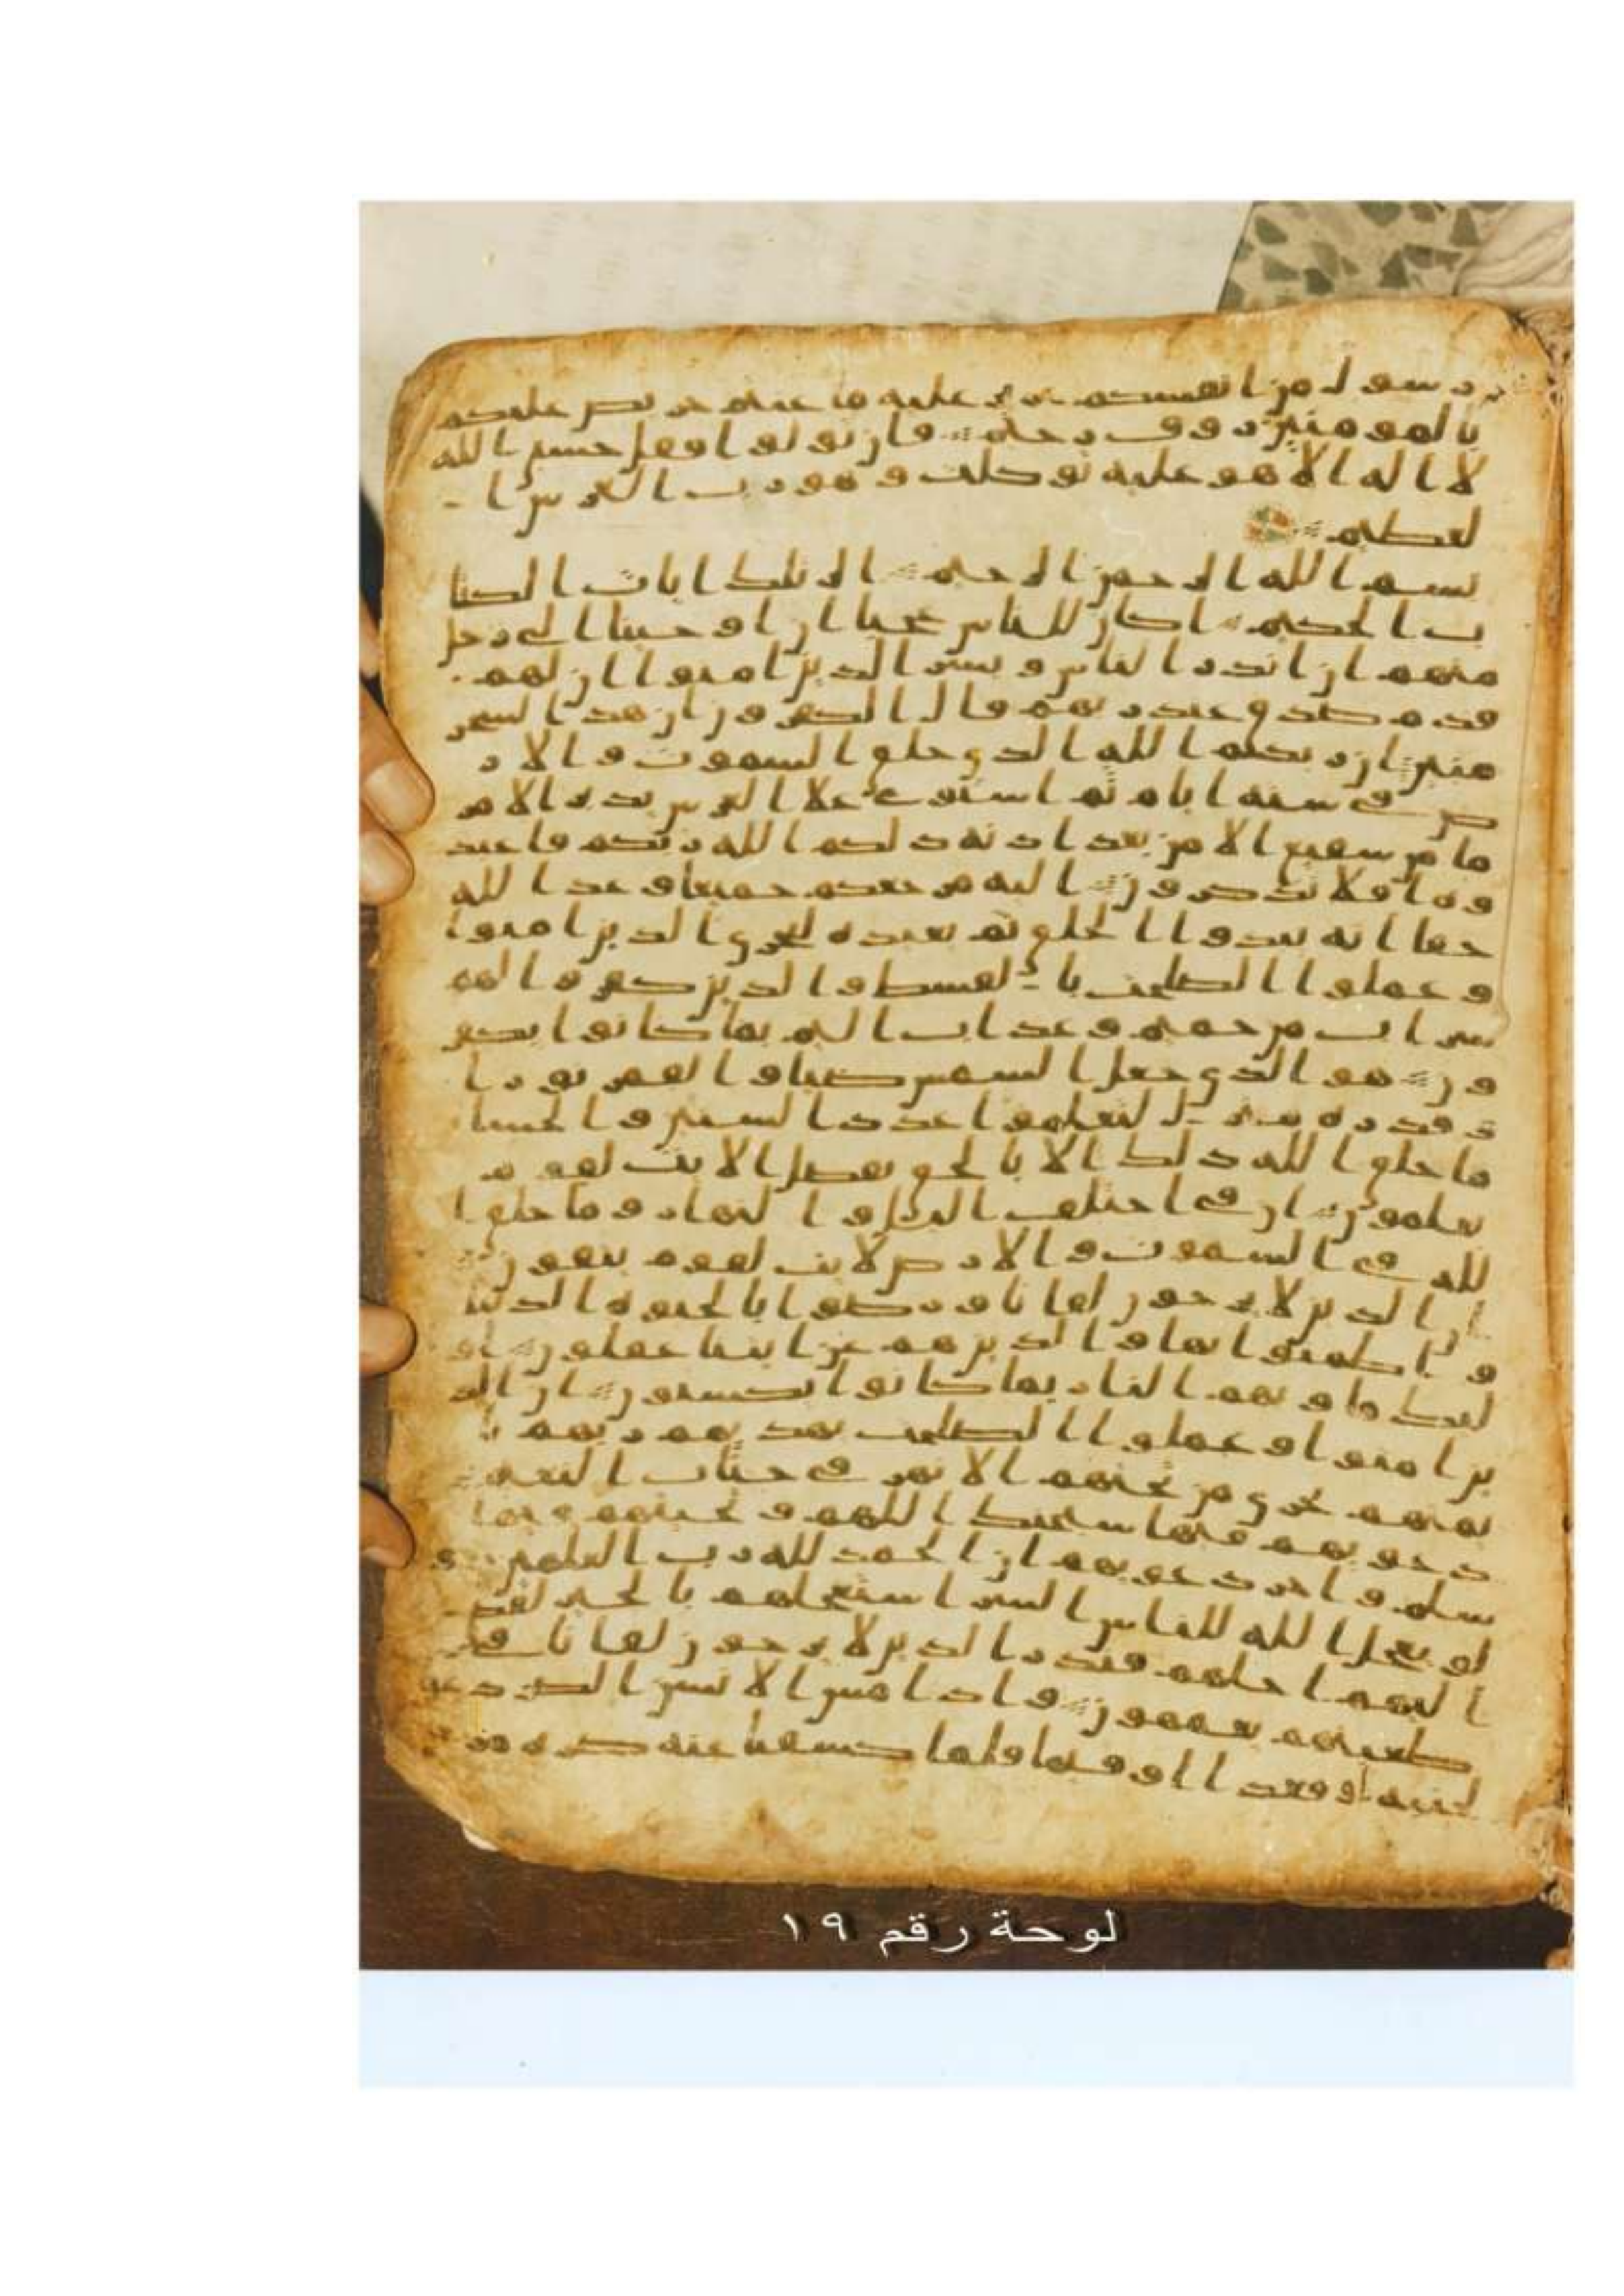 رسول من انفسكم عزيز عليه ما عنتم حريص عليكم
بالمومنين روف رحيم فان تولوا فقل حسبي الله
لا اله الا هو عليه توكلت وهو رب العرش ا
لعظيم
بسم الله الرحمن الرحيم الر تلك ايات الكتا
ب الحكيم اكان للناس عجبا ان اوحينا الى رجل
منهم ان انذر الناس وبشر الذين امنوا ان لهم
قدم صدق عند ربهم قال الكفرون ان هذا لسحر
مبين ان ربكم الله الذي خلق السموت والار
ض في ستة ايام ثم استوى علا العرش يدبر الامر
ما من شفيع الا من بعد اذنه ذلكم الله ربكم فاعبد
وه افلا تذكرون اليه مرجعكم جميعا وعد الله
حقا انه يبدوا الخلق ثم يعيده ليجزي الذين امنوا
وعملوا الصلحت با لقسط والذين كفروا لهم
شراب من حميم وعذاب اليم بما كانوا يكفر
ون هو الذي جعل الشمس ضيا والقمر نورا
وقدره منزل لتعلموا عدد السنين والحسا
ما خلق الله ذلك الا بالحق يفصل الايت لقوم
يعلمون ان في اختلف اليل والنهار وما خلق ا
لله في السموت والارض لايت لقوم يتقون
ان الذين لا يرجون لقانا ورضوا بالحيوه الدنيا
واطمنوا بها والذين هم عن ايتنا غفلون او
ليك ماويهم النار بما كانوا يكسبون ان الذ
ين امنوا وعملوا الصلحت يهديهم ربهم با
يمنهم تجري من تحتهم الانهر في جنات النعيم
دعويهم فيها سبحنك اللهم وتحيتهم فيها
سلم واخر دعويهم ان الحمد لله رب العلمين و
لو يعجل الله للناس الشر استعجلهم بالخير لقضـ
ا ليهم اجلهم فنذر الذين لا يرجون لقانا في
طغينهم يعمهون واذا مس الانسن الضر دعا
لجنبه او قعدا او قيما فلما كشفنا عنه ضره مر
لوحة رقم ١٩